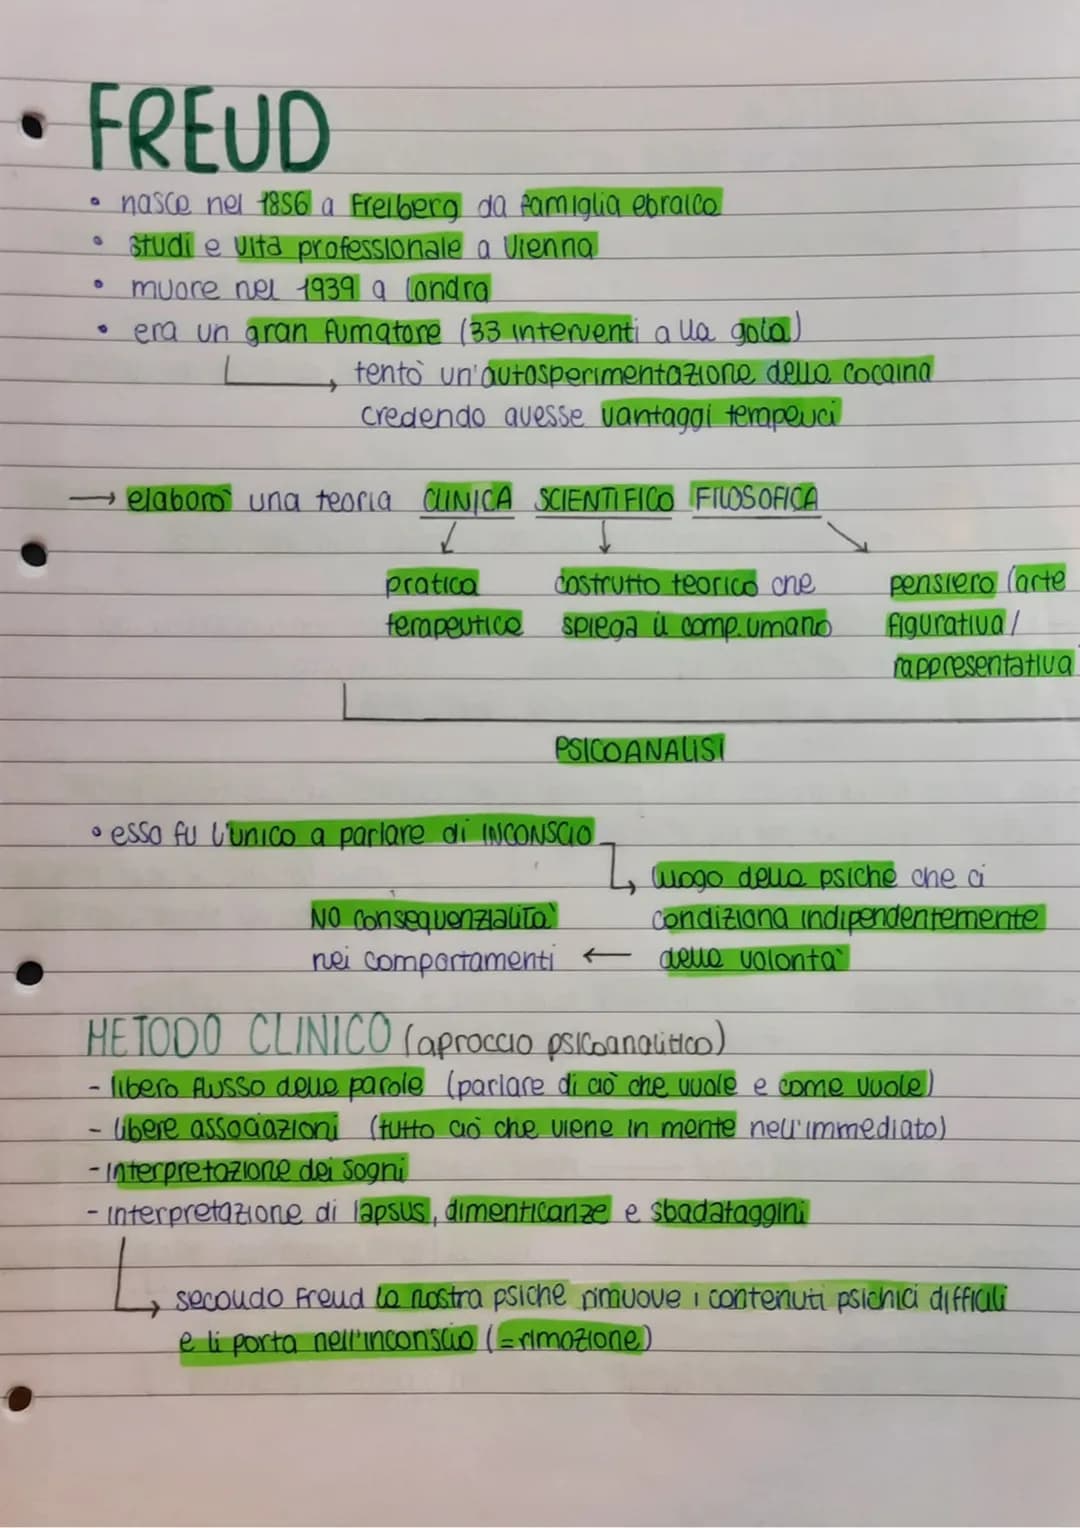 FREUD
• nasce nel 1856 a Freiberg da famiglia ebraica
• studi e vita professionale a Vienna
• muore nel 1939 a Londra
• era un gran fumatore (33 interventi alla gola)
tentò un'autosperimentazione della cocaina
credendo avesse vantaggi terapeuci
→ elaborò una teoria CLINICA SCIENTIFICO FILOSOFICA
pratica costrutto teorico che pensiero (arte
terapeutica spiega il comp. umano figurativa/
rappresentativa
PSICOANALISI
• esso fu l'unico a parlare di INCONSCIO
luogo della psiche che ci
NO consequenzialità condiziona indipendentemente
nei comportamenti ← della volontà
METODO CLINICO (aproccio psicoanalitico)
- libero flusso delle parole (parlare di ciò che vuole e come vuole)
- libere associazioni (tutto ciò che viene in mente nell'immediato)
- interpretazione dei sogni
- interpretazione di lapsus, dimenticanze e sbadataggini
secondo Freud la nostra psiche rimuove i contenuti psichici difficili
e li porta nell'inconscio (=rimozione)